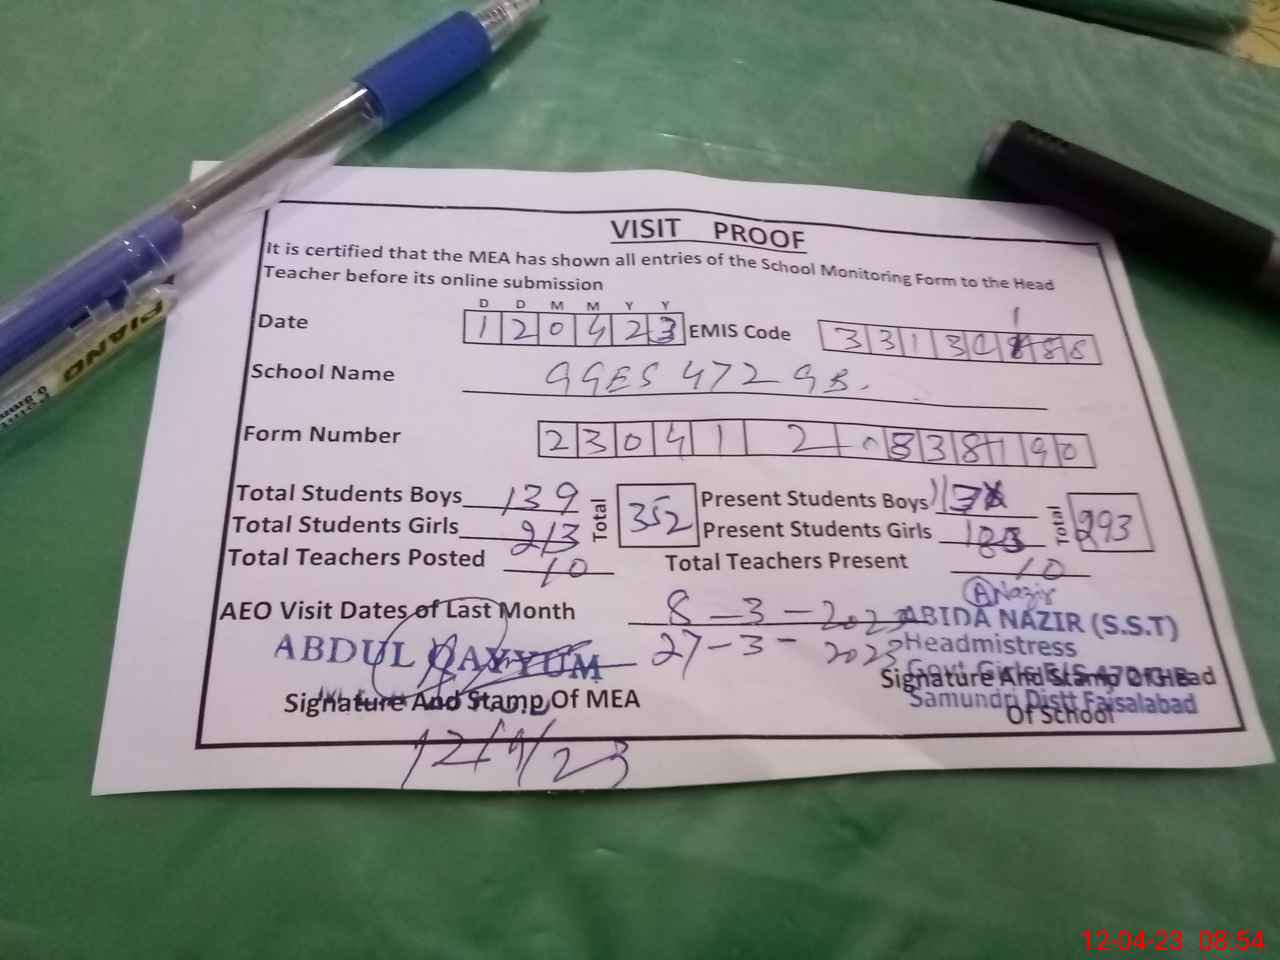 VISIT PROOF
It is certified that the MEA has shown all entries of the School Monitoring Form to the Head
Teacher before its online submission
D D M M Y Y
Date 120423 EMIS Code
School Name GGES 472 GB.
Form Number
Total Students Boys 139 Total 352 Present Students Boys Total 293
Total Students Girls 213 Present Students Girls
Total Teachers Posted 10 Total Teachers Present 10
A Nazir
AEO Visit Dates of Last Month 8-3-2023
27-3-2023
ABIDA NAZIR (S.S.T)
Headmistress
Samundri Distt Faisalabad
ABDUL QAYYUM
Signature And Stamp Of MEA
Signature And Stamp Of Head
Of School
12/4/23
PIANO
12-04-23 08:54